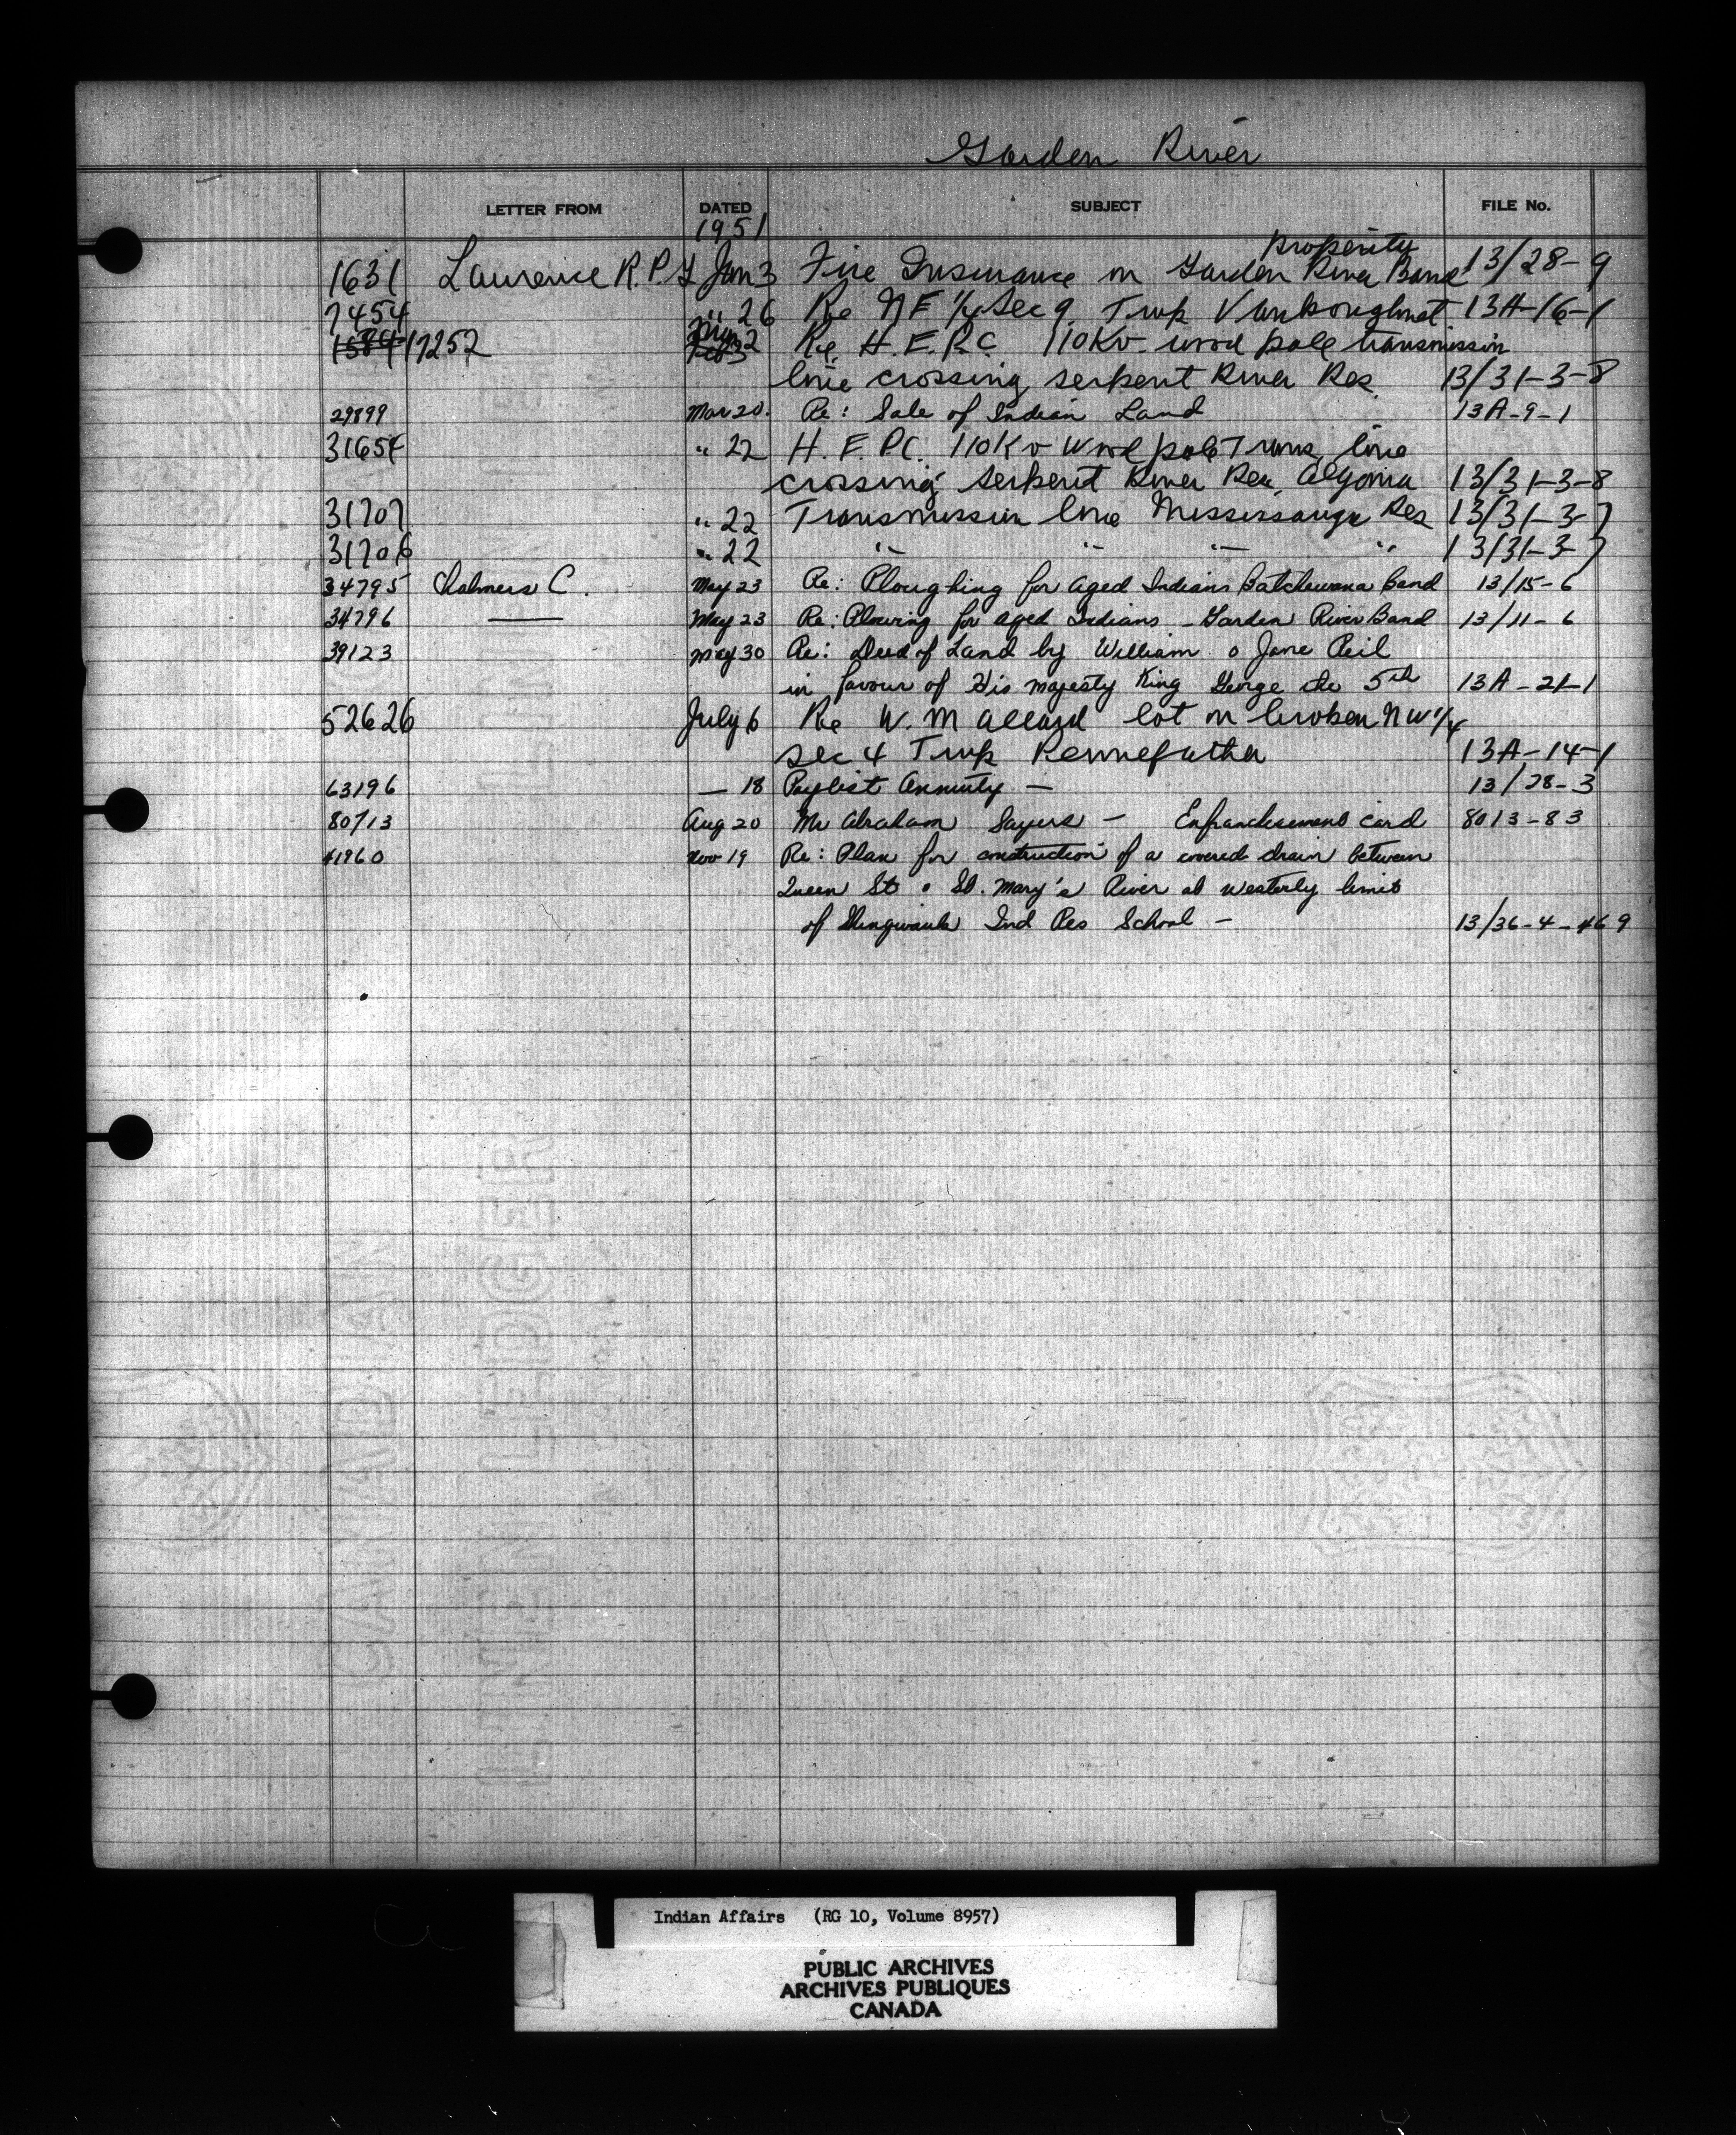 Garden River
LETTER FROM DATED SUBJECT FILE No.
1951
property
1631 Laurence R.P.G Jan 3 Fire Insurance on Garden River Band 13/28-9
7454 " 26 Re NE 1/4 Sec 9 Twp Vankoughnet 13A-16-1
17252 Re H.E.P.C. 110Kv. wood pole transmission
line crossing serpent River Res. 13/31-3-8
29899 Mar 20. Re: Sale of Indian Land 13A-9-1
31654 " 22 H.E.P.C. 110Kv Wood pole Trans, line
crossing serpent River Res, Algoma 13/31-3-8
31707 " 22 Transmission line Mississauga Res 13/31-3-7
31706 " 22 " " " " 13/31-3-7
34795 Chalmers C. May 23 Re: Ploughing for aged Indians Batchewana Band 13/15-6
34796 — May 23 Re: Plowing for aged Indians - Garden River Band 13/11-6
39123 May 30 Re: Deed of Land by William & Jane Reil
in favour of His majesty King George the 5th 13A-21-1
52626 July 6 Re W.M Allard lot on broken NW 1/4
sec 4 Twp Pennefather 13A-14-1
63196 — 18 Paylist Annuity — 13/28-3
80713 Aug 20 Mr Abraham Sayers - Enfranchisement card 8013-83
41960 Nov 19 Re: Plan for construction of a covered drain between
Queen St & St. Mary's River at westerly limit
of Shingwauk Ind Res School - 13/36-4-469
Indian Affairs (RG 10, Volume 8957)
PUBLIC ARCHIVES
ARCHIVES PUBLIQUES
CANADA